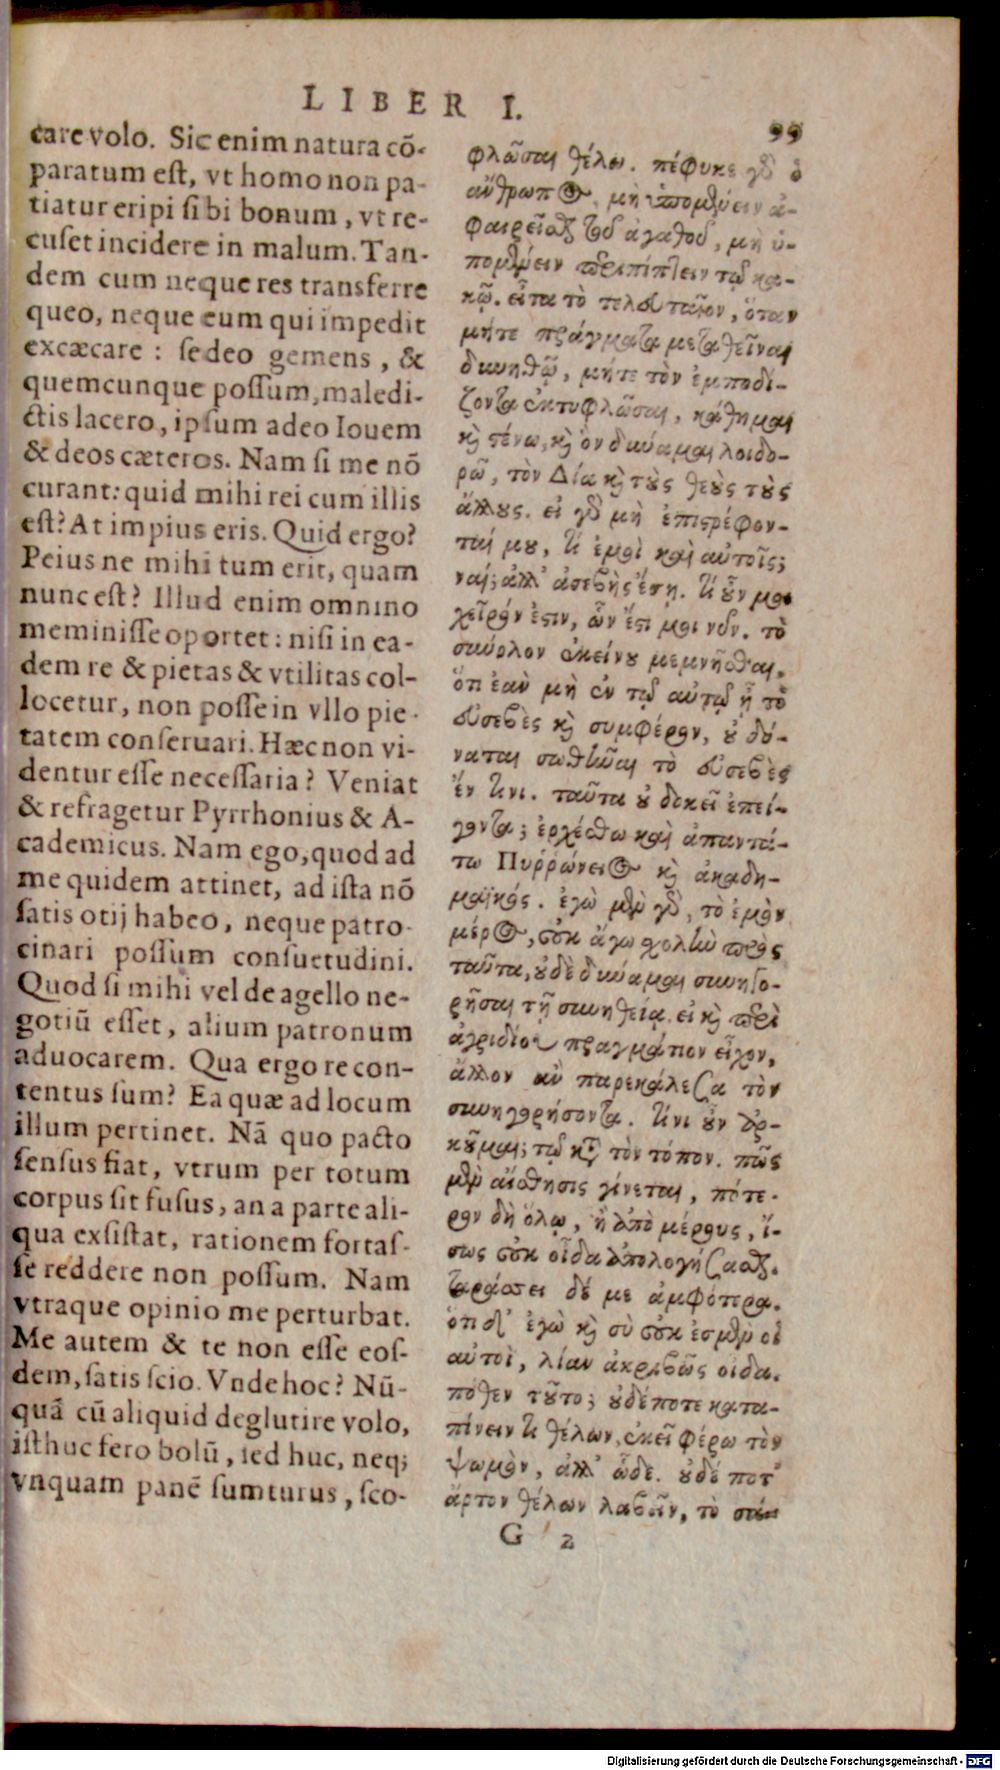 LIBER I.
99
care volo. Sic enim natura cō-
paratum est, vt homo non pa-
tiatur eripi sibi bonum, vt re-
cuset incidere in malum. Tan-
dem cum neque res transferre
queo, neque eum qui impedit
excæcare: sedeo gemens, &
quemcunque possum, maledi-
ctis lacero, ipsum adeo Iouem
& deos cæteros. Nam si me nō
curant: quid mihi rei cum illis
est? At impius eris. Quid ergo?
Peius ne mihi tum erit, quam
nunc est? Illud enim omnino
meminisse oportet: nisi in ea-
dem re & pietas & vtilitas col-
locetur, non posse in vllo pie-
tatem conseruari. Hæc non vi-
dentur esse necessaria? Veniat
& refragetur Pyrrhonius & A-
cademicus. Nam ego, quod ad
me quidem attinet, ad ista nō
satis otij habeo, neque patro-
cinari possum consuetudini.
Quod si mihi vel de agello ne-
gotiū esset, alium patronum
aduocarem. Qua ergo re con-
tentus sum? Ea quæ ad locum
illum pertinet. Nā quo pacto
sensus fiat, vtrum per totum
corpus sit fusus, an a parte ali-
qua exsistat, rationem fortas-
se reddere non possum. Nam
vtraque opinio me perturbat.
Me autem & te non esse eos-
dem, satis scio. Vnde hoc? Nū-
quā cū aliquid deglutire volo,
isthuc fero bolū, sed huc, neq;
vnquam panē sumturus, sco-
φλῶσαι θέλω. πέφυκε γὸ ὁ
ἄνθρωπος, μὴ ὑπομένειν ἀ-
φαιρεῖσθαι τοῦ ἀγαθοῦ, μὴ ὑ-
πομένειν περιπίπτειν τῷ κα-
κῷ. εἶτα τὸ τελευταῖον, ὅταν
μήτε πράγματα μεταθεῖναι
δυνηθῶ, μήτε τὸν ἐμποδί-
ζοντα ἐκτυφλῶσαι, κάθημαι
καὶ στένω, καὶ ὃν δύναμαι λοιδο-
ρῶ, τὸν Δία καὶ τοὺς θεοὺς τοὺς
ἄλλους. εἰ γὸ μὴ ἐπιστρέφον-
ταί μου, τί ἐμοὶ καὶ αὐτοῖς;
ναί; ἀλλ' ἀσεβὴς ἔσῃ. τί οὖν μοι
χεῖρόν ἐστιν, ὧν ἔστι μοι νῦν. τὸ
σύνολον ἐκείνου μεμνῆσθαι,
ὅτι ἐὰν μὴ ἐν τῷ αὐτῷ ᾖ τὸ
εὐσεβὲς καὶ συμφέρον, οὐ δύ-
ναται σωθῆναι τὸ εὐσεβὲς
ἔν τινι. ταῦτα οὐ δοκεῖ ἐπεί-
γοντα; ἐρχέσθω καὶ ἀπαντά-
τω Πυῤῥώνειος καὶ ἀκαδη-
μαϊκός. ἐγὼ μὲν γὸ, τὸ ἐμὸν
μέρος, οὐκ ἄγω σχολὴν πρὸς
ταῦτα, οὐδὲ δύναμαι συνηγο-
ρῆσαι τῇ συνηθείᾳ. εἰ καὶ περὶ
ἀγριδίου πραγμάτιον εἶχον,
ἄλλον ἂν παρεκάλεσα τὸν
συνηγορήσοντα. τίνι οὖν ἀρ-
κοῦμαι; τῷ κατὰ τὸν τόπον. πῶς
μὲν αἴσθησις γίνεται, πότε-
ρον δὴ ὅλῳ, ἢ ἀπὸ μέρους, ἴ-
σως οὐκ οἶδα ἀπολογήσασθαι.
ταράσσει δέ με ἀμφότερα.
ὅτι δ' ἐγὼ καὶ σὺ οὐκ ἐσμὲν οἱ
αὐτοὶ, λίαν ἀκριβῶς οἶδα.
πόθεν τοῦτο; οὐδέποτε κατα-
πίνειν τι θέλων, ἐκεῖ φέρω τὸν
ψωμὸν, ἀλλ' ὧδε. οὐδέ ποτ'
ἄρτον θέλων λαβεῖν, τὸ σά-
G 2
Digitalisierung gefördert durch die Deutsche Forschungsgemeinschaft - DFG